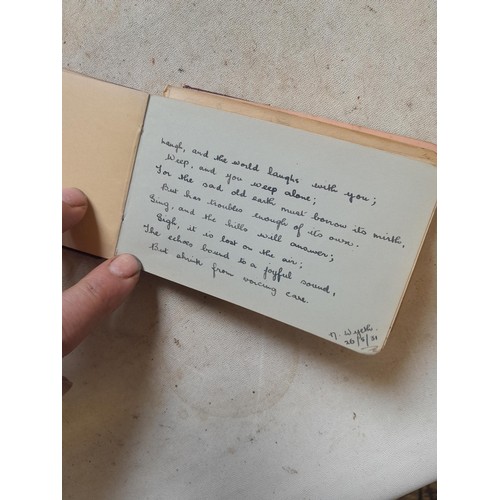 Laugh, and the world laughs with you;
Weep, and you weep alone;
For the sad old earth must borrow its mirth,
But has troubles enough of its own.
Sing, and the hills will answer;
Sigh, it is lost on the air;
The echoes bound to a joyful sound,
But shrink from voicing care.
N. Wyeth.
20/8/31